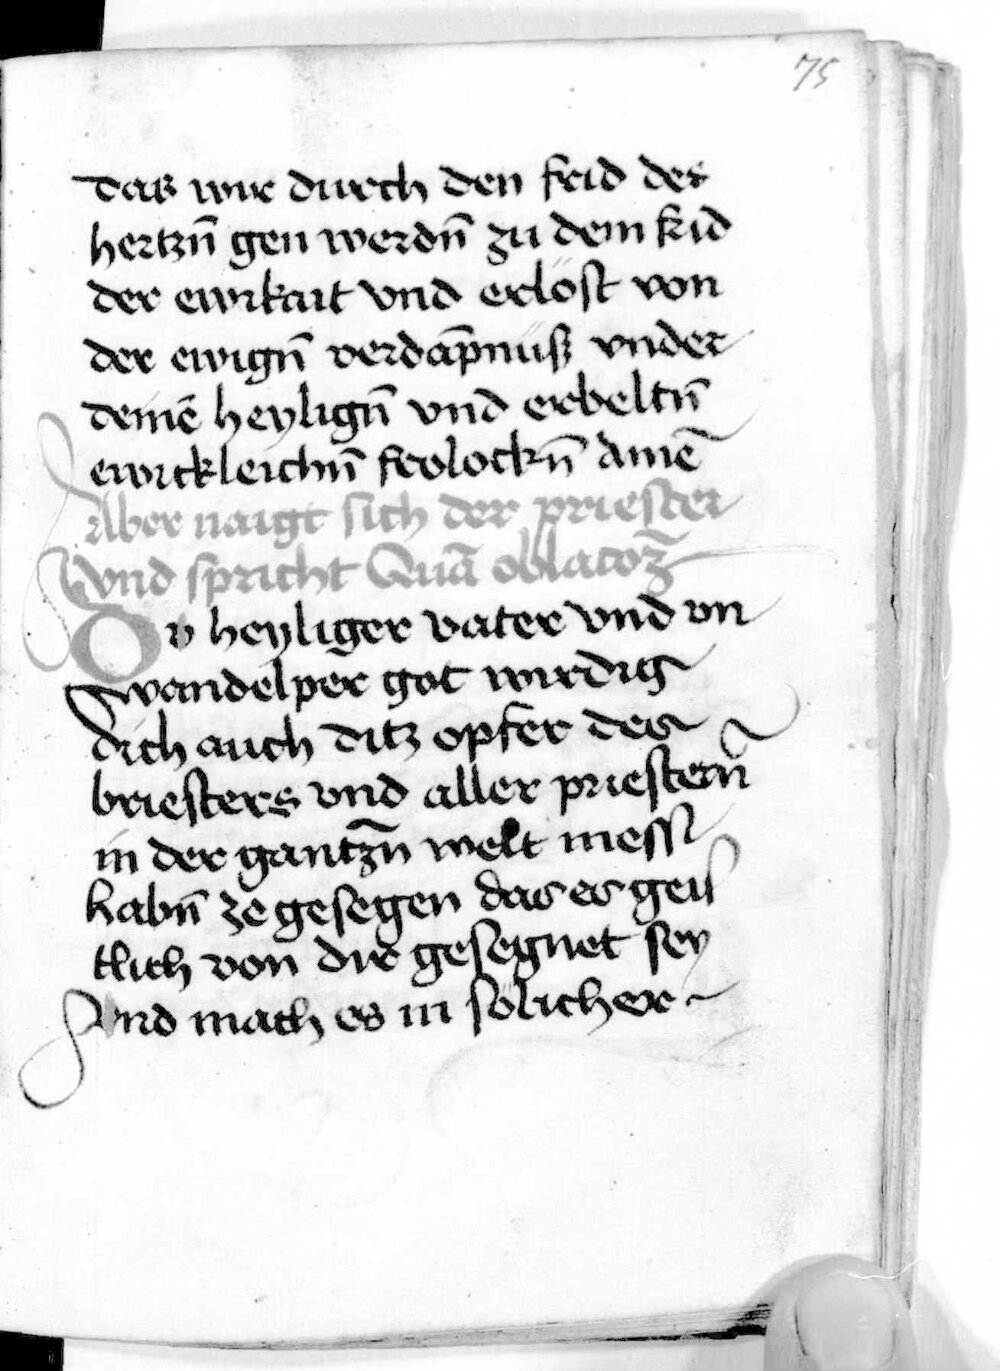 75
das wir durch den frid des
hertzn̄ gen werdn̄ zu dem frid
der ewikait vnd erlöst von
der ewign̄ verdāpnüß vnder
deinē heylign̄ vnd erbeltn̄
ewickleichn̄ frolockn̄ Amē
Aber naigt sich der priester
vnd spricht Quā oblacoꝫ
Du heyliger vater vnd vn
wandelper got wirdig
dich auch ditz opfer des
briesters vnd aller priestern̄
in der gantzn̄ welt mess
habn̄ ze gesegen das es geis
tlich von dir gesegnet sey
vnd mach es in sölicher